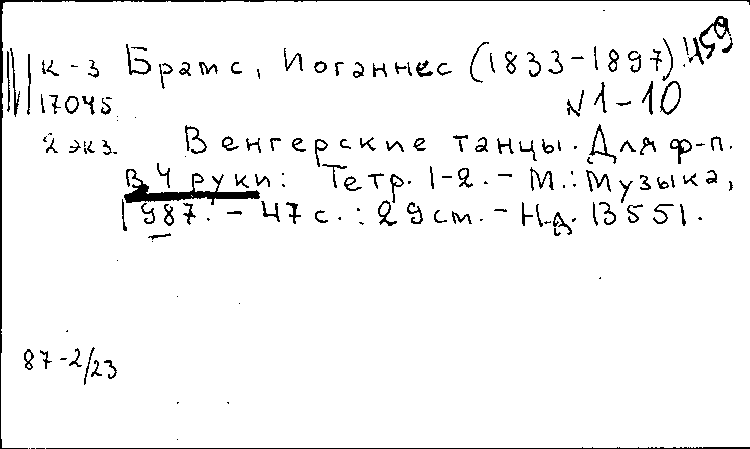 К-3 Брамс, Иоганнес (1833-1897). 459
17045 N 1-10
2 экз. Венгерские танцы. Для ф-п.
в 4 руки: Тетр. 1-2. - М.: Музыка,
1987. - 47 с. : 29 см. - Н.д. 13551.
87-2/23